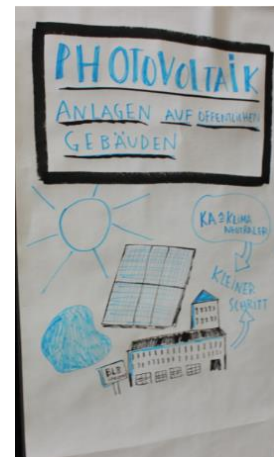 PHOTOVOLTAIK
ANLAGEN AUF ÖFFENTLICHEN
GEBÄUDEN
KLIMA
KLEINER
SCHRITT